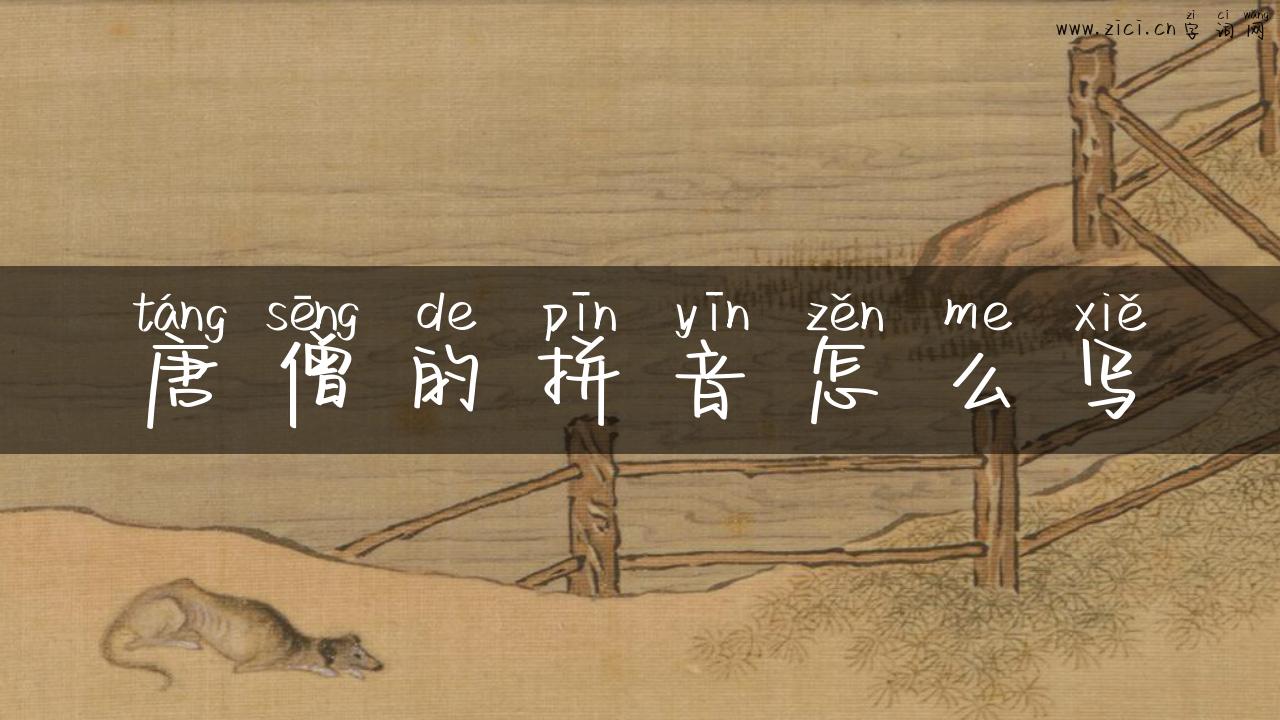 zi ci wang
www.zici.cn字词网
táng sēng de pīn yīn zěn me xiě
唐僧的拼音怎么写